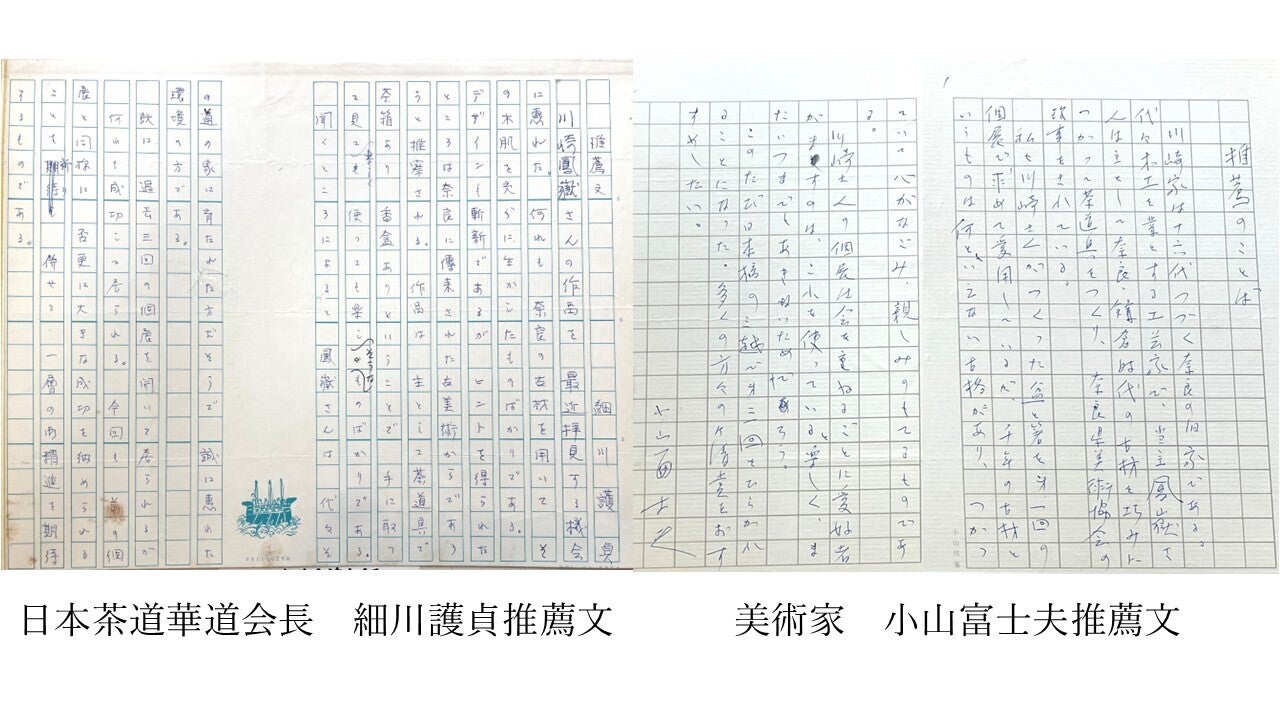 推薦文　細川護貞
川崎鳳嶽さんの作品を最近拝見する機会
に恵れた。何れも奈良の古材を用いてそ
の木肌を生かしたものばかりである。
デザインも斬新であるがヒントを得られた
ところは奈良に傳来された古美術からであろ
うと推察される。作品は主として茶道具で
茶箱あり香盒ありということで手に取っ
て見ても使っても楽しそうなものばかりである。
聞くところによると鳳嶽さんは代々そ
の道の家に育たれた方だそうで誠に恵れた
環境の方である。
既に過去三回の個展を開いて居られるが
何れも成功して居られる。今回も前の個
展と同様に否更に大きな成功を納められる
ことを祈り併せて一層の御精進を期待
するものである。
日本茶道華道会長　細川護貞推薦文
推薦のことば
川崎家は十六代つづく奈良の旧家である。
代々木工を業とする工芸家で、当主鳳嶽さ
んは主として奈良・鎌倉時代の古材を巧みに
つかって茶道具をつくり、奈良県美術協会の
理事をされている。
私も川崎さんがつくった盆と箸を第一回の
個展で求めて愛用しているが、千年の古材と
いうものは何ともいえない古格があり、つかっ
ていて心がなごみ、親しみのもてるものであ
る。
川崎さんの個展は会を重ねるごとに愛好者
がますのは、これを使っていると楽しく、ま
たいつまでもあきないためだろう。
このたび日本橋の三越で第三回をひらかれ
ることになった。多くの方々の御清賞をおす
すめしたい。
小山冨士夫
美術家　小山富士夫推薦文